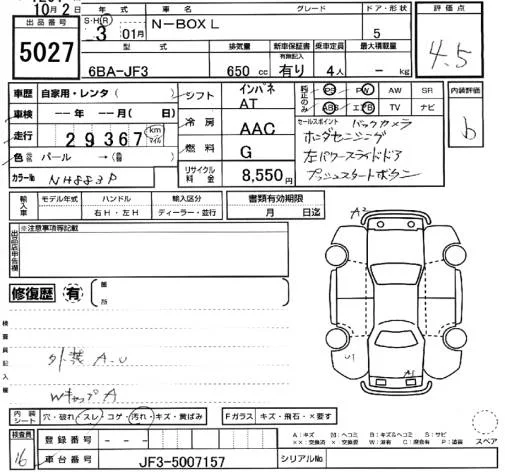 10月2日
出品番号
5027
年式
S・H・R
3 01月
車名
N-BOX L
グレード
ドア・形状
5
評価点
4.5
型式
6BA-JF3
排気量
650 cc
新車保証書
有効記入
有り
乗車定員
4人
最大積載量
- kg
車歴 自家用・レンタ( )
車検 --年 --月( 日)
走行 29367 km マイル
色 パール → (替)
カラーNo NH883P
シフト インパネ AT
冷房 AAC
燃料 G
リサイクル料金 8,550円
純正のみ PS PW AW SR
ABS エアB TV ナビ
セールスポイント バックカメラ
ホンダセンシング
左パワースライドドア
プッシュスタートボタン
内装評価
b
輸入車
モデル年式
ハンドル
右H・左H
輸入区分
ディーラー・並行
書類有効期限
月 日迄
出品店申告欄
※注意事項等記載
修復歴 有 箇所
検査員記入欄
外装 A.U
Wキャップ A
A2
U1
A1
内装シート 穴・破れ スレ コゲ・汚れ・キズ・黄ばみ
Fガラス キズ・飛石・×要す
検査員
16
登録番号 - - -
車台番号 JF3-5007157
シリアルNo
A:キズ M:ヘコミ B:キズ&ヘコミ S:サビ
××:交換済 ×:交換要 W:波有 C:腐食 P:塗装
スペア